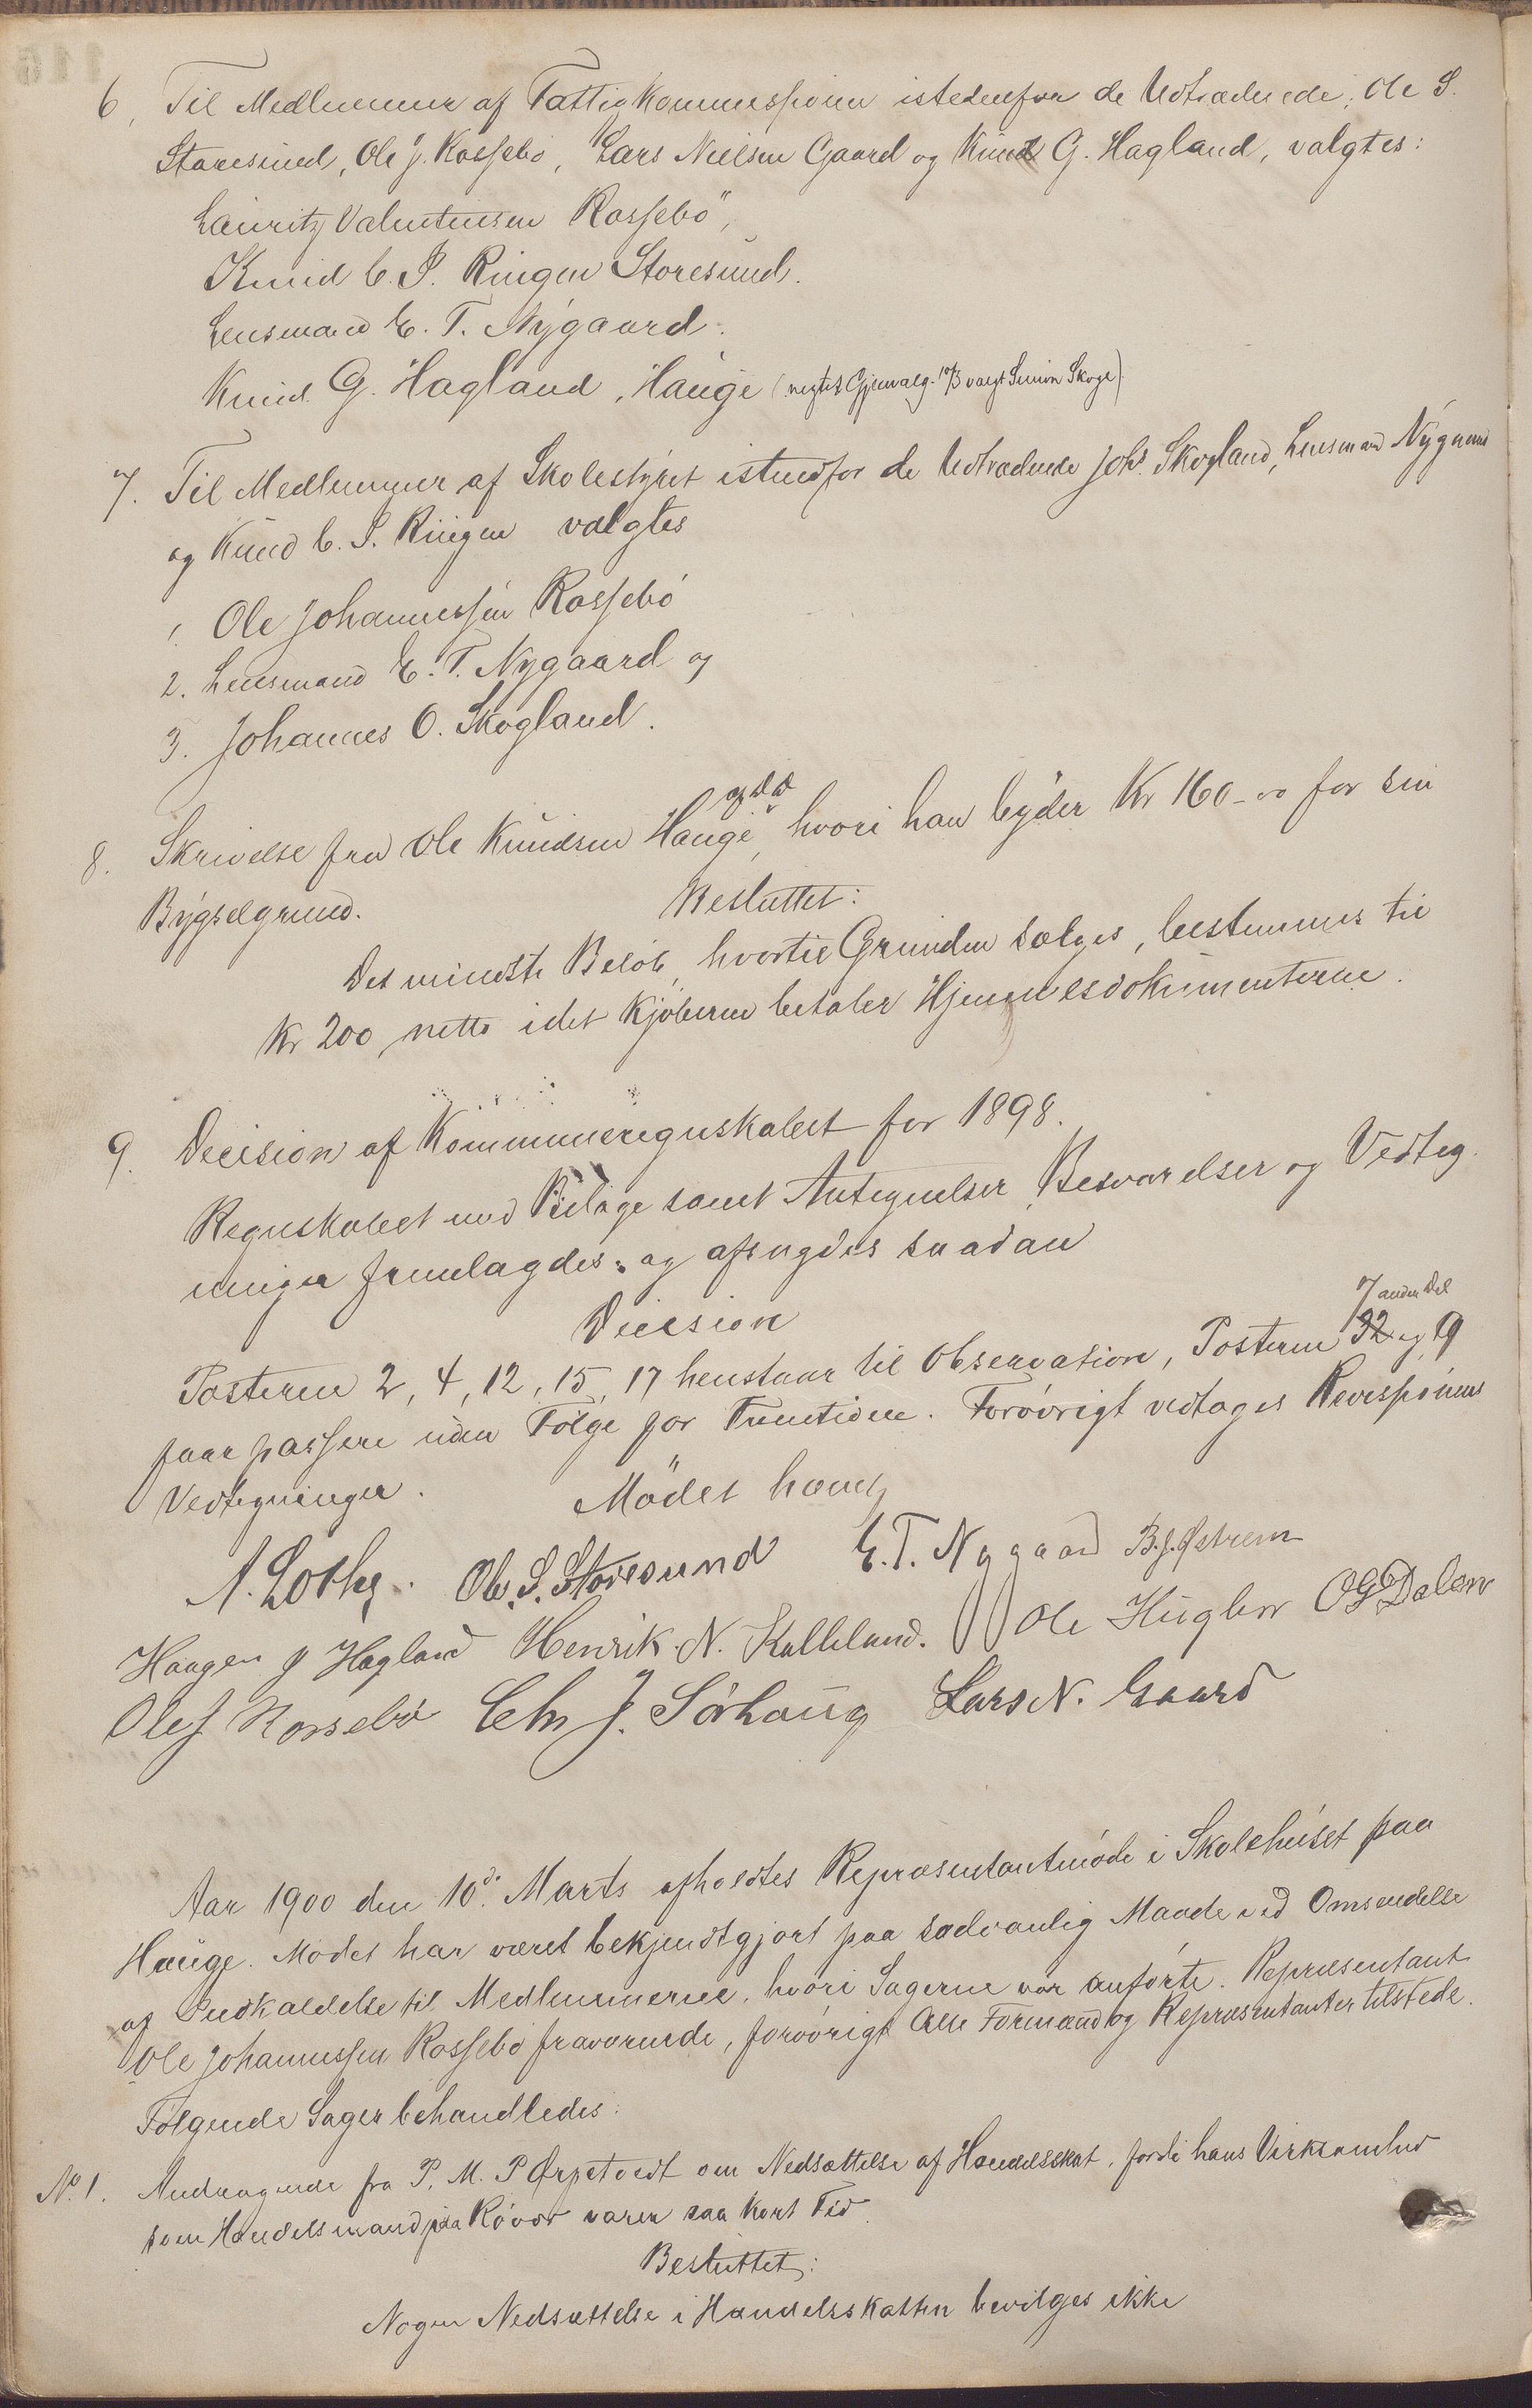 6, Til Medlemmer af Fattigkommissionen istedenfor de Udtrædende: Ole S.
Storesund, Ole J. Rossebø, Lars Nielsen Gaard og Knud G. Hagland, valgtes:
Lauritz Valentinsen Rossebø,
Knud C. S. Ringen Storesund.
Lensmand E. T. Nygaard.
Knud G. Hagland, Hauge (negtet Gjenvalg. 10/3 valgt Simon Skoge)
7. Til Medlemmer af Skolestyret istedfor de Udtrædende Johs Skogland, Lensmand Nygaard
og Knud C. S. Ringen valgtes
1 Ole Johannessen Rossebø
2. Lensmand E. T. Nygaard og
3. Johannes O. Skogland.
8. Skrivelse fra Ole Knudsen Hauge, hvori han byder Kr 160-00 for sin
Bygselgrund.
Besluttet:
Det mindste Beløb, hvortil Grunden sælges, bestemmes til
Kr 200 netto idet Kjøberen betaler Hjemmelsdokumenterne.
9. Decision af Kommuneregnskabet for 1898.
Regnskabet med Bilage samt Antegnelser, Besvarelser og Vedteg-
ninger fremlagdes og afsagdes saadan
Decision
7 anden Del
Posterne 2, 4, 12, 15, 17 henstaar til Observation, Posterne 32 og 19
faar passere uden Følge for Fremtiden. Forøvrigt vedtages Revisionens
Vedtegninger.
Mødet hævet,
A. Lothe. Ole S. Storesund E. T. Nygaard B. J. Østrem
Haagen J Hagland Henrik N. Kalleland. Ole Huglen O G Dalen
Ole J Rossebø Chr J. Sørhaug Lars N. Gaard
Aar 1900 den 10d. Marts afholdtes Repræsentantmøde i Skolehuset paa
Hauge. Mødet har været bekjendtgjort paa sædvanlig Maade ved Omsendelse
af Indkaldelse til Medlemmerne, hvori Sagerne var anførte. Repræsentant
Ole Johannessen Rossebø fraværende, forøvrigt alle Formænd og Repræsentanter tilstede.
Følgende Sager behandledes:
No. 1. Andragende fra P. M. P Ørpetvedt om Nedsættelse af Handelsskat, fordi hans Virksomhed
som Handelsmand paa Røvær varer saa kort Tid.
Besluttet:
Nogen Nedsættelse i Handelsskatten bevilges ikke